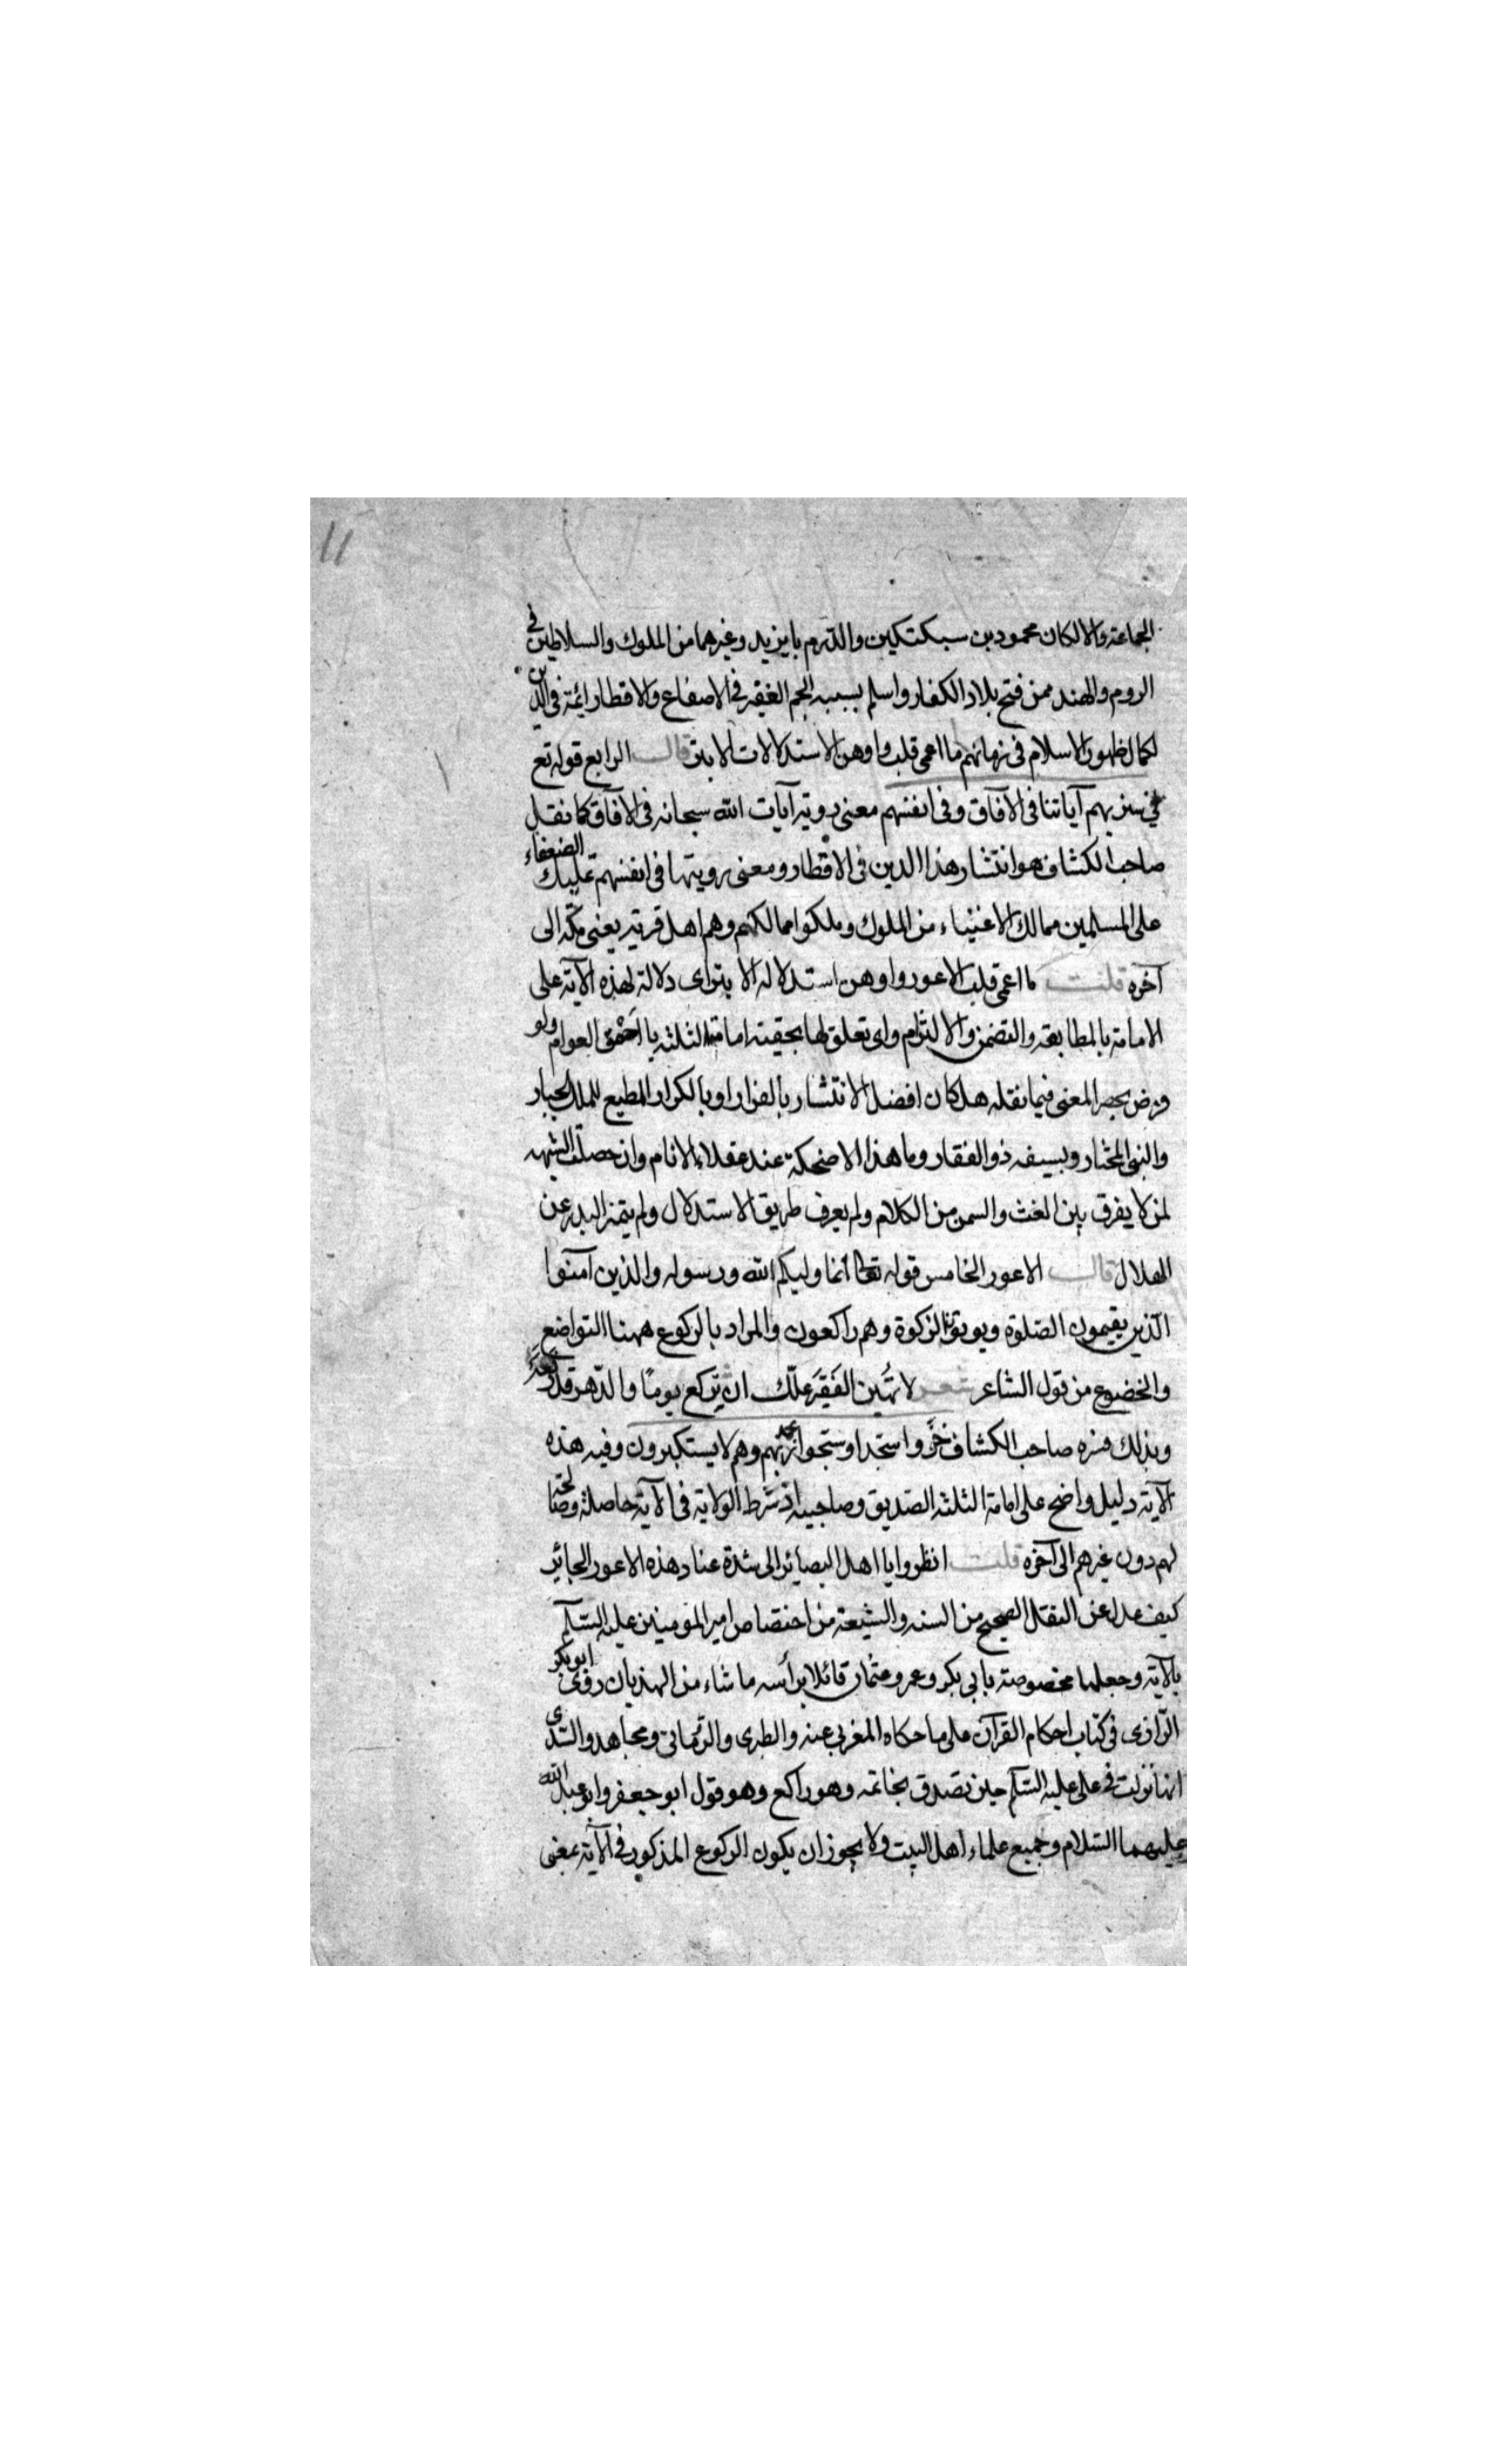 11
الجماعة والا لكان محمود بن سبكتكين والدرم بايزيد وغيرهما من الملوك والسلاطين في
الروم والهند ممن فتح بلاد الكفار واسلم بسببه الجم الغفير في الاصقاع والاقطار ائمة في الدين
لكمال ظهور الاسلام في زمانهم ما اعمى قلبه واوهن الاستدلالات الابتر قال الرابع قوله تع
سنريهم آياتنا في الآفاق وفي انفسهم معنى روية آيات الله سبحانه في الآفاق كما نقل
صاحب الكشاف هو انتشار هذا الدين في الاقطار ومعنى رويتها في انفسهم تمليك الضعفاء
على المسلمين ممالك الاغنياء من الملوك وملكوا ممالكهم وهم اهل قرية يعني مكة الى
آخره قلت ما اعمى قلب الاعور واوهن استدلاله الابتر اى دلالة لهذه الآية على
الامامة بالمطابقة والتضمن والالتزام واى تعلق لها بحقية امامة الثلثة يا احمق العوام ولو
فرض حصر المعنى فيما نقله هل كان افضل الانتشار بالفرار او بالكرار المطيع للملك الجبار
والنبي المختار وبسيفه ذو الفقار وما هذا الا ضحكة عند عقلاء الانام وان حصلت الشبهه
لمن لا يفرق بين الغث والسمن من الكلام ولم يعرف طريق الاستدلال ولم يتميز البدر عن
الهلال قال الاعور الخامس قوله تعالى انما وليكم الله ورسوله والذين آمنوا
الذين يقيمون الصلوة ويوتون الزكوة وهم راكعون والمراد بالركوع ههنا التواضع
والخضوع من قول الشاعر شعر لا تُهين الفَقيَر علّك ان تركع يومًا والدّهر قد رفعه
وبذلك فسره صاحب الكشاف خرّوا سجدا وسبحوا بحمد ربهم وهم لا يستكبرون وفيه هذه
الآية دليل واضح على امامة الثلثه الصديق وصاحبيه اذ شرط الولاية في الآية حاصلة وصالحة
لهم دون غيرهم الى آخره قلت انظروا يا اهل البصائر الى شدة عناد هذه الاعور الجائر
كيف عدل عن النقل الصحيح من السنه والشيعة من اختصاص امير المؤمنين عليه السلم
بالآية وجعلها مخصوصة بابي بكر وعمر وعثمان قائلا برأسه ما شاء من الهذيان روى ابو بكر
الرّازى في كتاب احكام القرآن على ما حكاه المغربي عنه والطبرى والرّماني ومجاهد والسّدى
انها نزلت في على عليه السّلم حين تصدق بخاتمه وهو راكع وهو قول ابو جعفر وابو عبد الله
عليهما السّلام وجميع علماء اهل البيت ولا يجوز ان يكون الركوع المذكور في الآية بمعنى